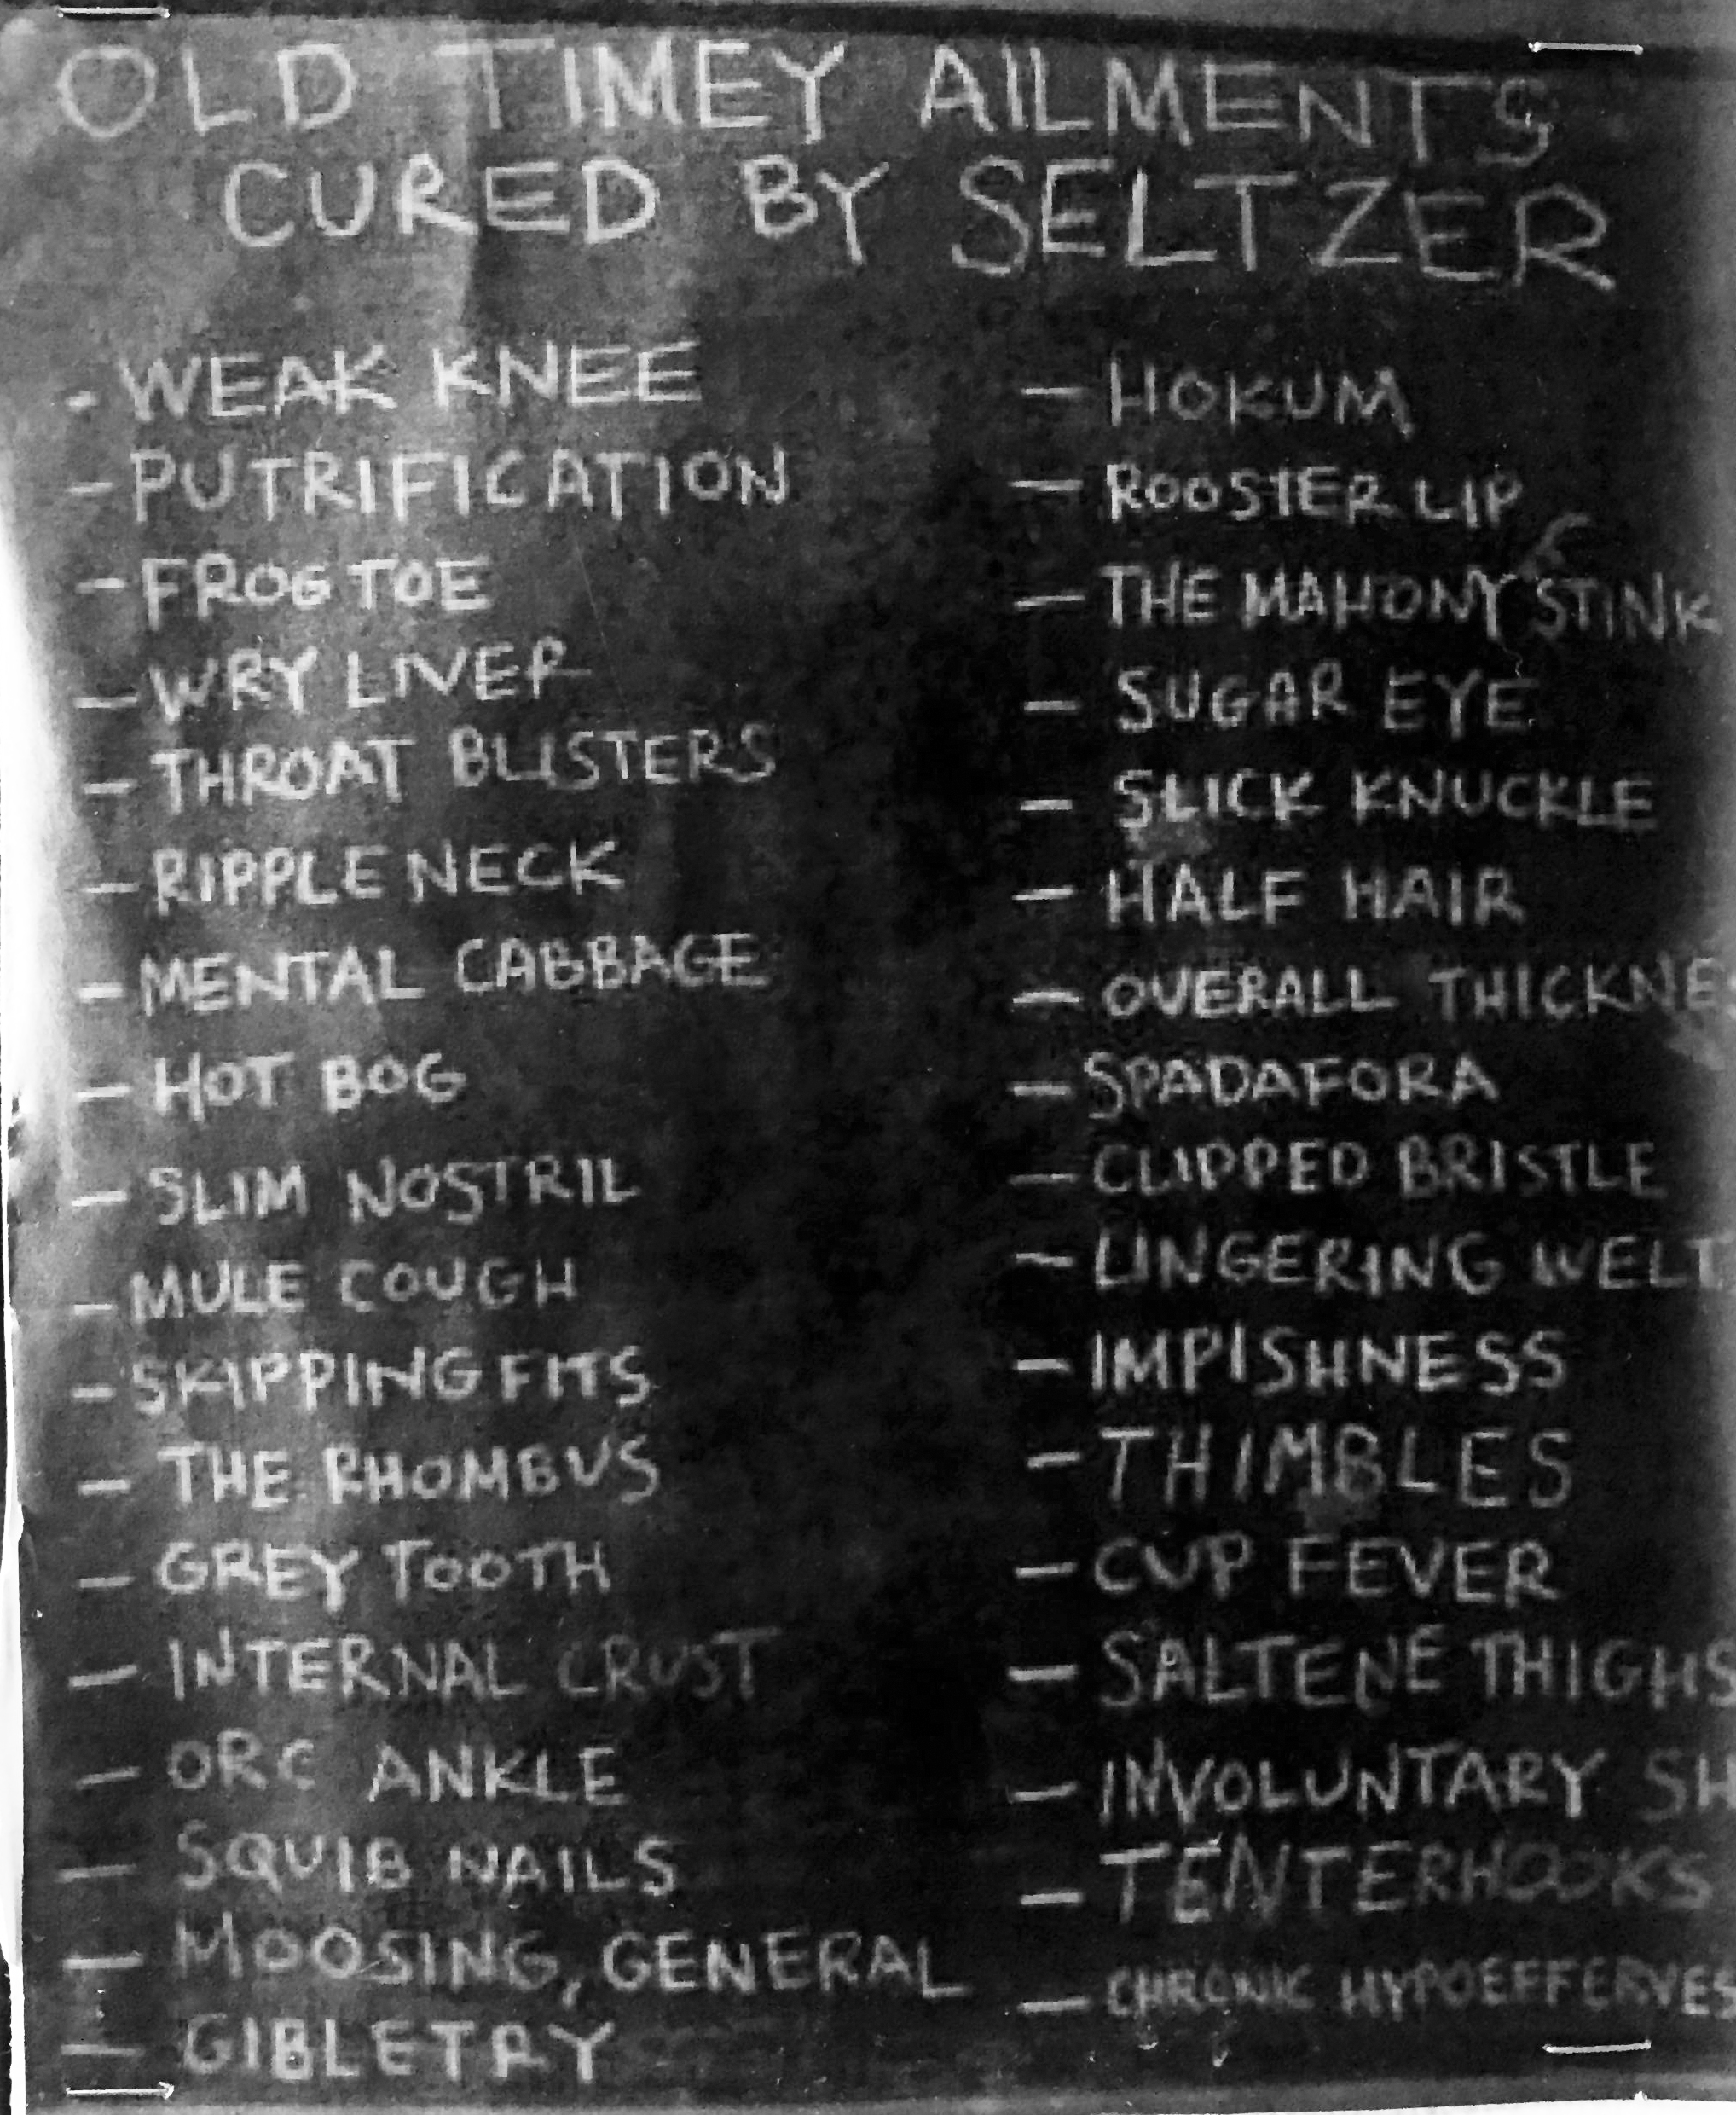 OLD TIMEY AILMENTS
CURED BY SELTZER
- WEAK KNEE
- PUTRIFICATION
- FROG TOE
- WRY LIVER
- THROAT BLISTERS
- RIPPLE NECK
- MENTAL CABBAGE
- HOT BOG
- SLIM NOSTRIL
- MULE COUGH
- SKIPPING FITS
- THE RHOMBUS
- GREY TOOTH
- INTERNAL CRUST
- ORC ANKLE
- SQUIB NAILS
- MOOSING, GENERAL
- GIBLETRY
- HOKUM
- ROOSTER LIP
- THE MAHONY STINK
- SUGAR EYE
- SLICK KNUCKLE
- HALF HAIR
- OVERALL THICKNE
- SPADAFORA
- CLIPPED BRISTLE
- LINGERING WELT
- IMPISHNESS
- THIMBLES
- CUP FEVER
- SALTENE THIGHS
- INVOLUNTARY SH
- TENTERHOOKS
- CHRONIC HYPOEFFERVES